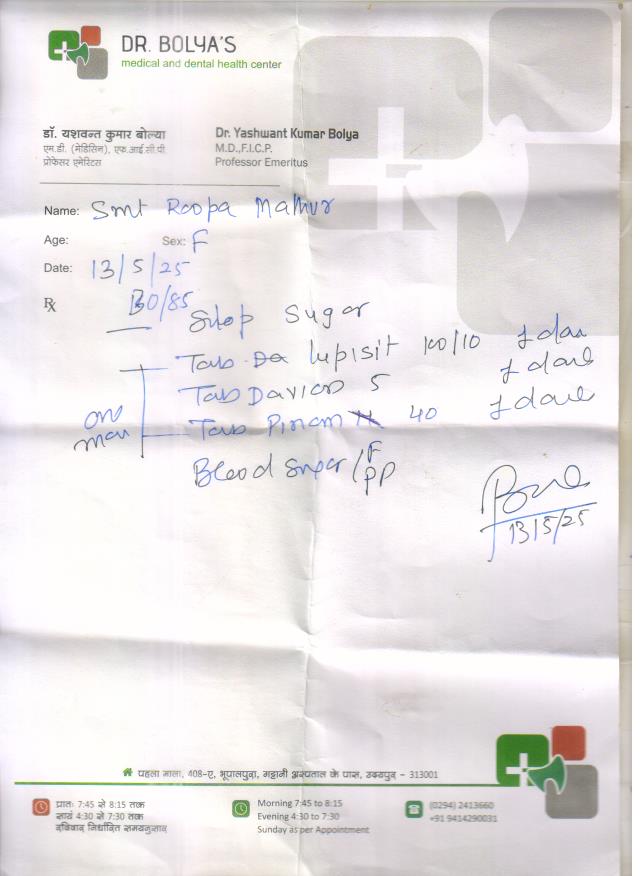 DR. BOLYA'S
medical and dental health center
डॉ. यशवन्त कुमार बोल्या
एम.डी. (मेडिसिन), एफ.आई.सी.पी.
प्रोफेसर एमेरिटस
Dr. Yashwant Kumar Bolya
M.D.,F.I.C.P.
Professor Emeritus
Name: Smt Roopa Mathur
Age:
Sex: F
Date: 13/5/25
Rx 130/85
Stop Sugar
Tab lupisit 100/10 1 daily
Tab 5 1 daily
Tab 40 1 daily
one
Blood Sugar/F
PP
13/5/25
पहला माला, 408-ए, भूपालपुरा, मट्टानी अस्पताल के पास, उदयपुर - 313001
प्रातः 7:45 से 8:15 तक
सायं 4:30 से 7:30 तक
रविवार निर्धारित समयनुसार
Morning 7:45 to 8:15
Evening 4:30 to 7:30
Sunday as per Appointment
(0294) 2413660
+91 9414290031